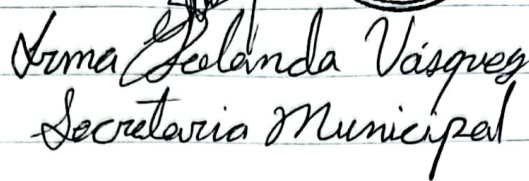 Irma Yolanda Vásquez
Secretaria Municipal